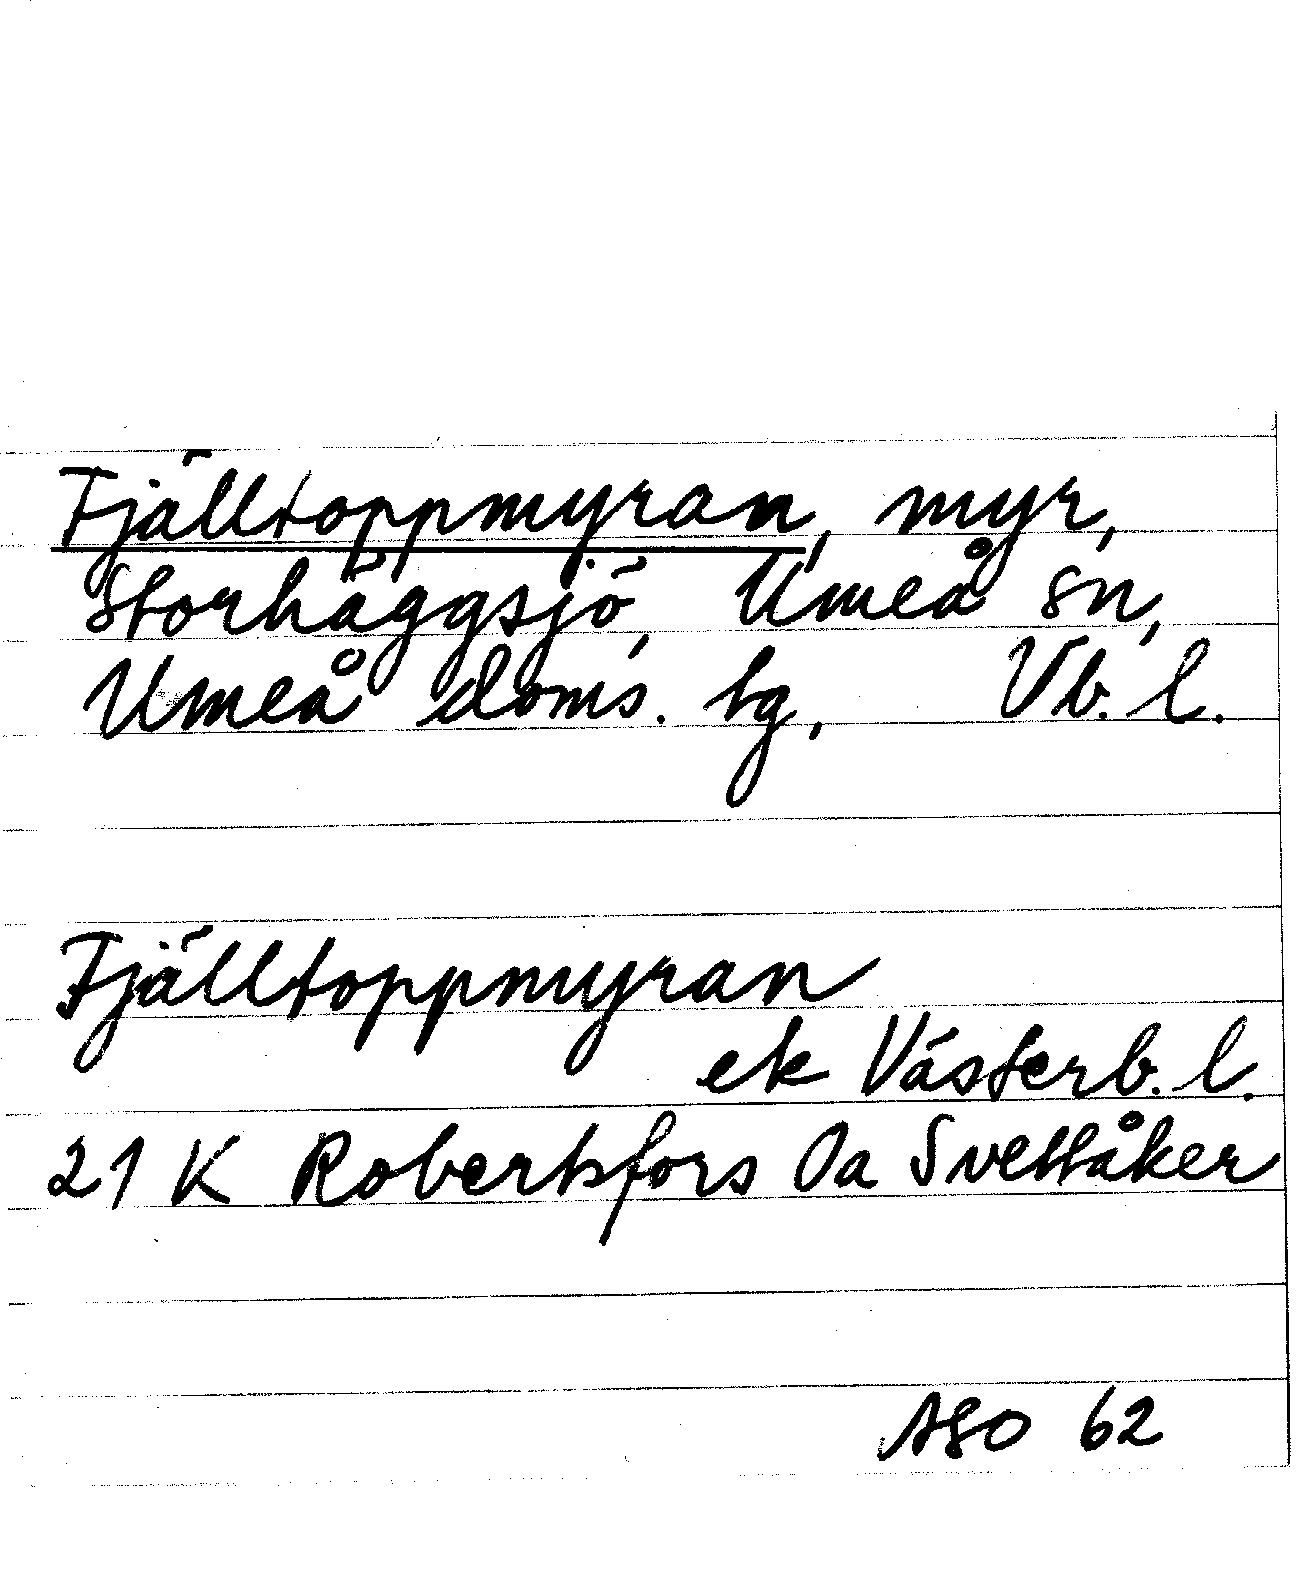 Fjälltoppmyran, myr,
Storhäggsjö, Umeå sn,
Umeå doms. tg, Vb. l.
Fjälltoppmyran
ek Västerb. l.
21 K Robertsfors Oa Svettåker
ASO 62